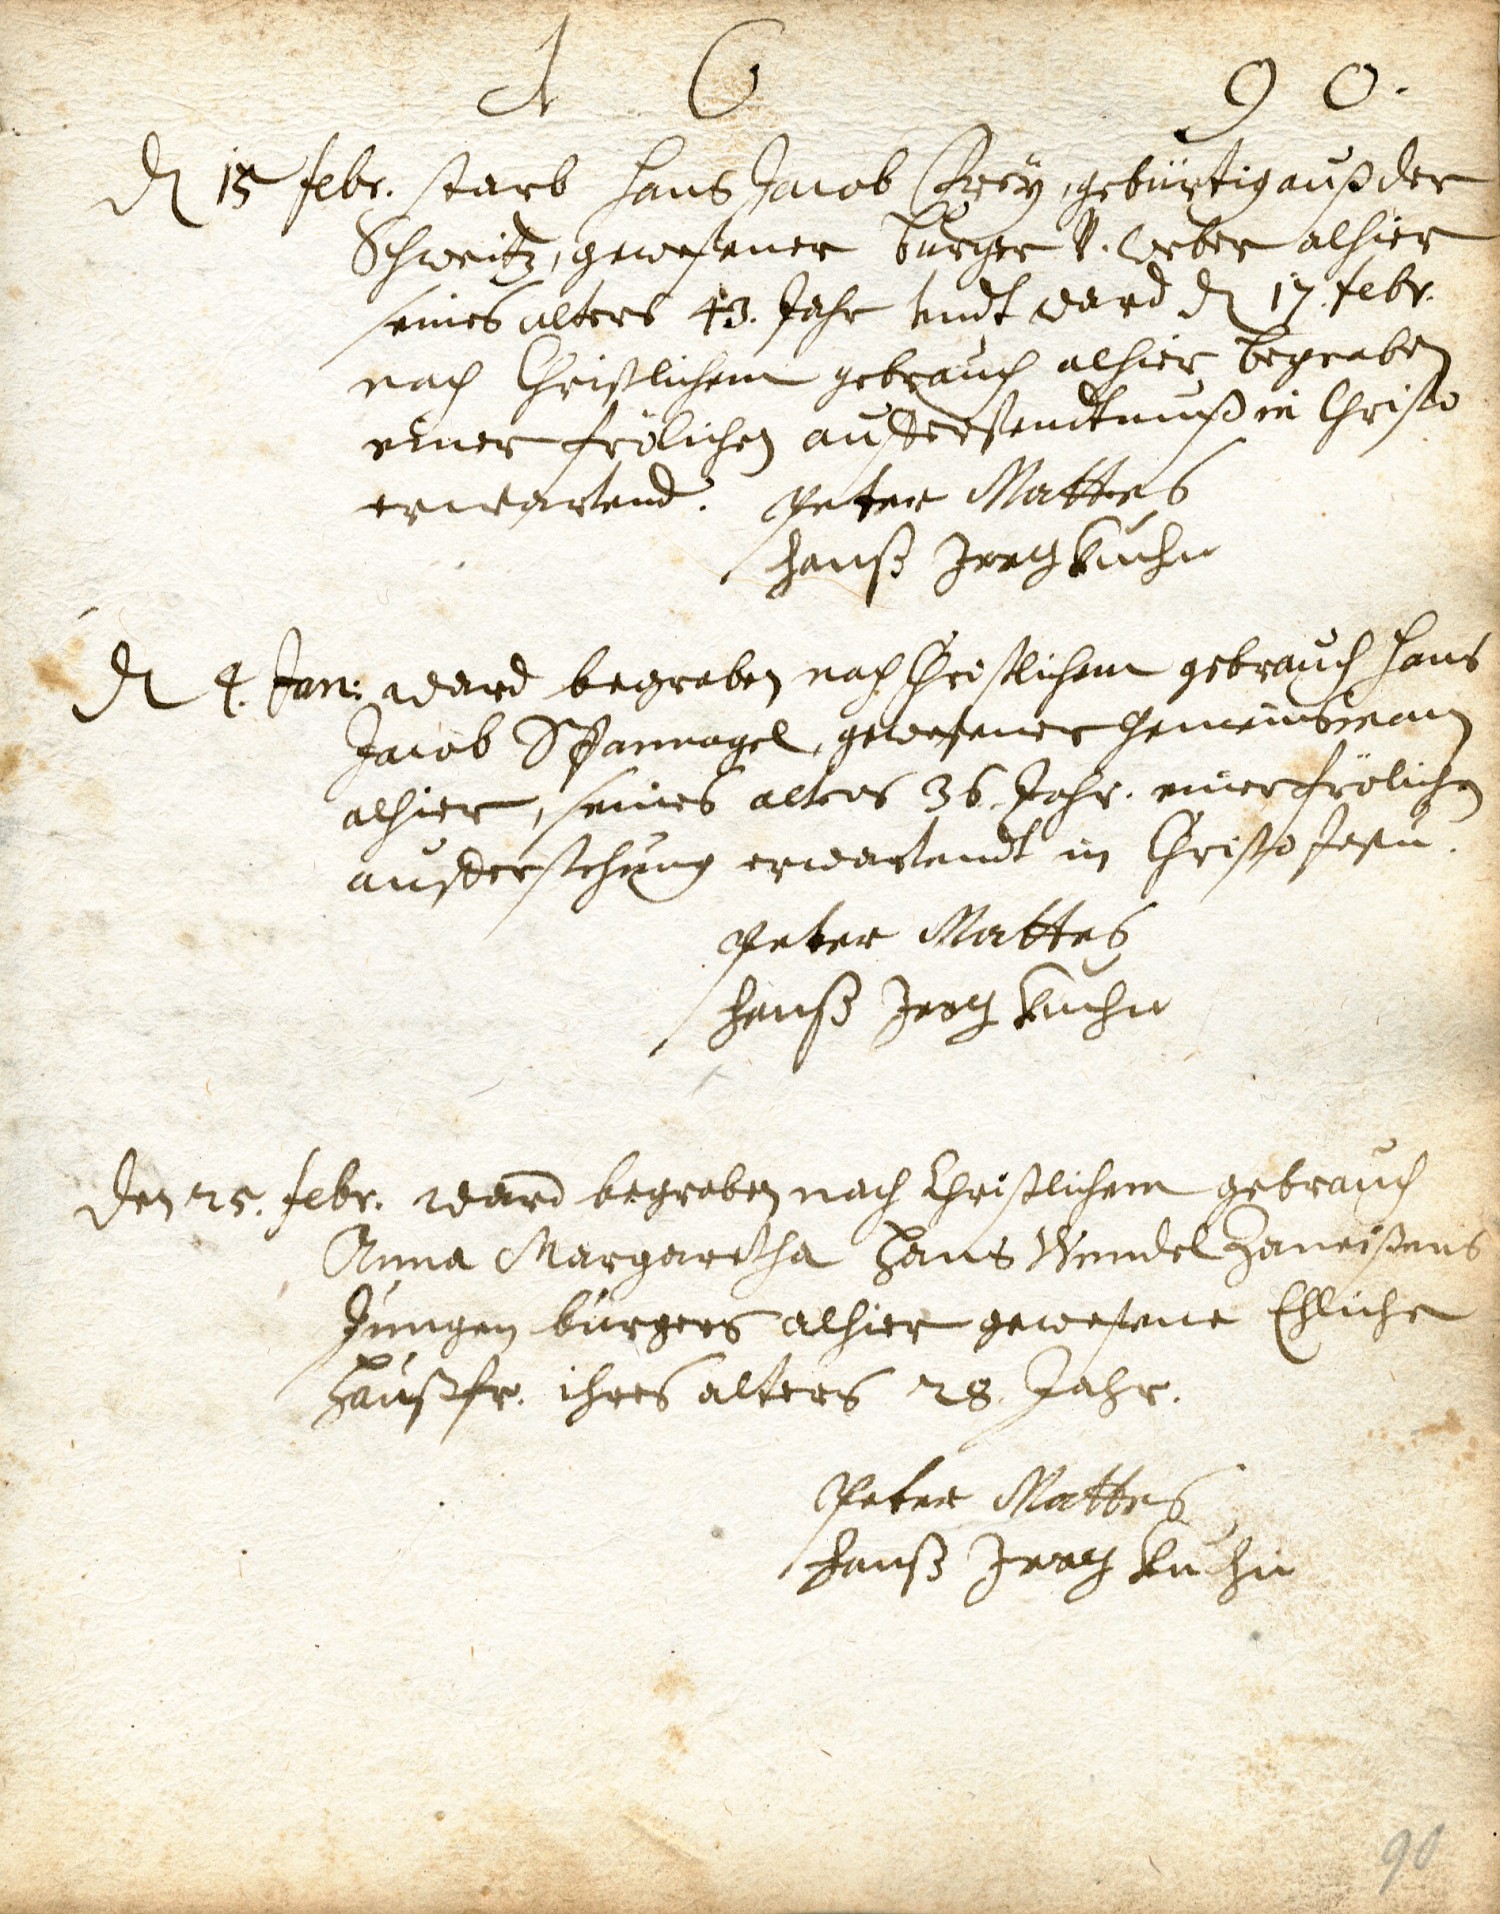 1 6 90.
D 15 febr. starb Hans Jacob Frey, gebürtig auß der
Schweitz, gewesener burger v. weber alhier
seines alters 43. Jahr undt ward d 17. febr.
nach Christlichem gebrauch alhier begraben
einer frölichen aufferstendtnuß in Christo
erwartend. Peter Mattes
Hanß Jerg Kuhn
D 4. Jan: ward begraben nach Christlichem gebrauch Hans
Jacob Spannagel, gewesener gemeinsman
alhier, seines alters 36 Jahr. einer frölichen
aufferstehung erwartendt in Christo Jesu.
Peter Mattes
Hanß Jerg Kuhn
Den 25. febr. ward begraben nach Christlichem gebrauch
Anna Margaretha Hans Wendel
Jungen burgers alhier gewesene Ehliche
Haußfr. ihres alters 28. Jahr.
Peter Mattes
Hanß Jerg Kuhn
90